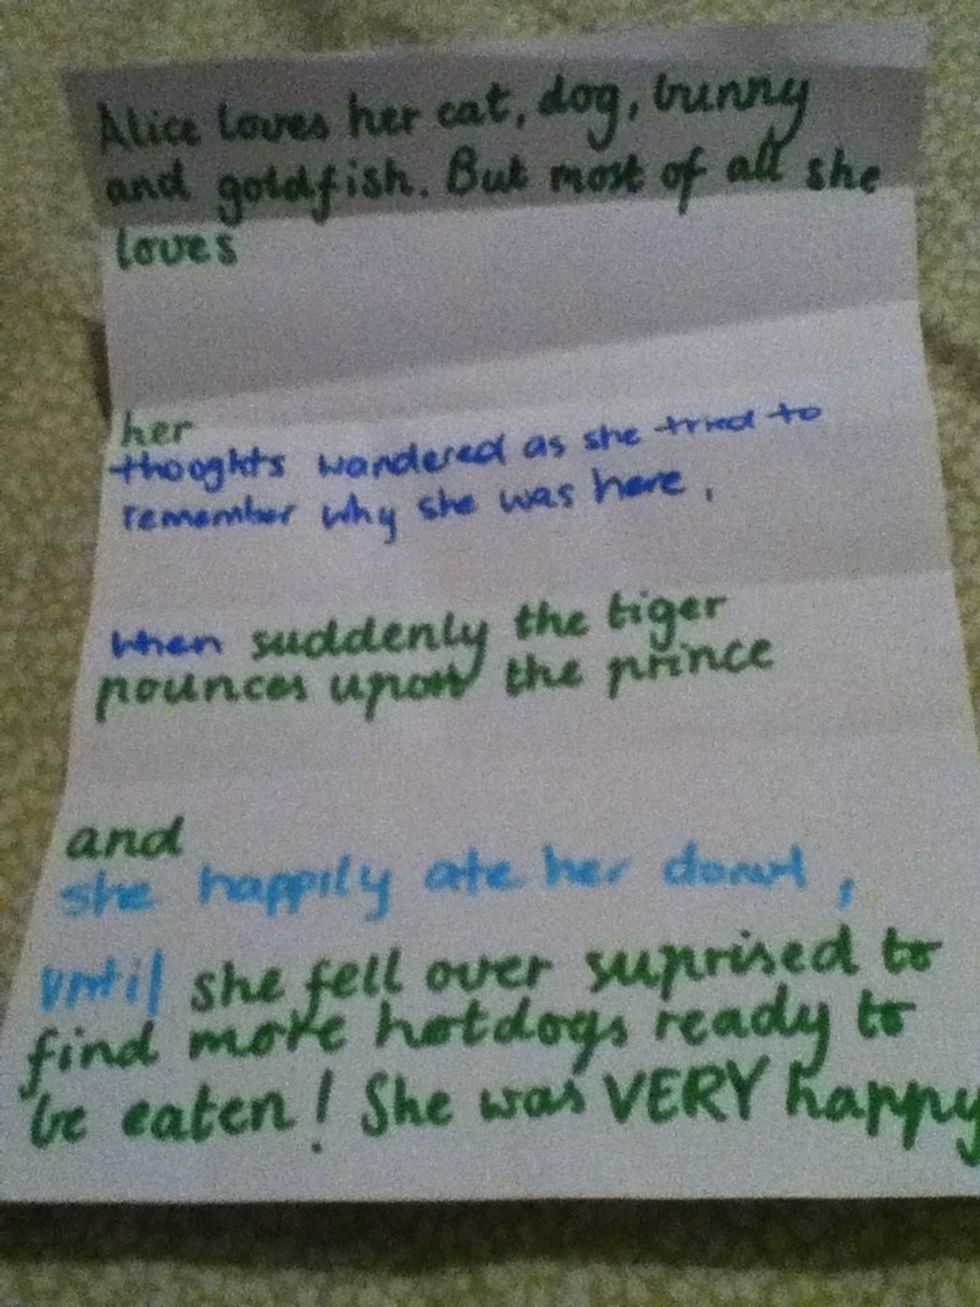 Alice loves her cat, dog, bunny
and goldfish. But most of all she
loves
her
thoghts wandered as she tried to
remember why she was here,
when suddenly the tiger
pounces upon the prince
and
she happily ate her donut,
until she fell over suprised to
find more hotdogs ready to
be eaten! She was VERY happy